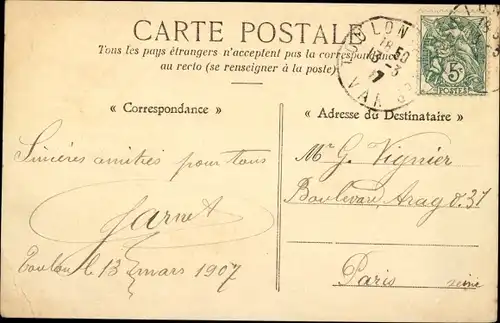 CARTE POSTALE
Tous les pays étrangers n'acceptent pas la correspondance
au recto (se renseigner à la poste)
TOULON
18 50
13 - 3
VAR
5c
POSTES
« Correspondance »
« Adresse du Destinataire »
Sincères amitiés pour tous
Garnet
Toulon le 13 mars 1907
Mr G. Vignier
Boulevard Arago. 31
Paris Seine